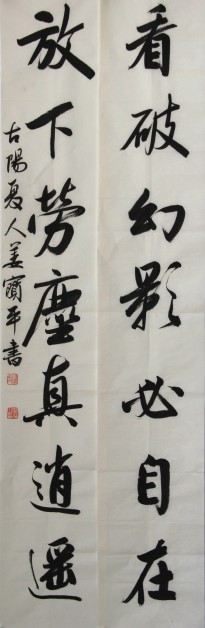 看破幻影必自在
放下勞塵真逍遥
古陽夏人姜寶平書